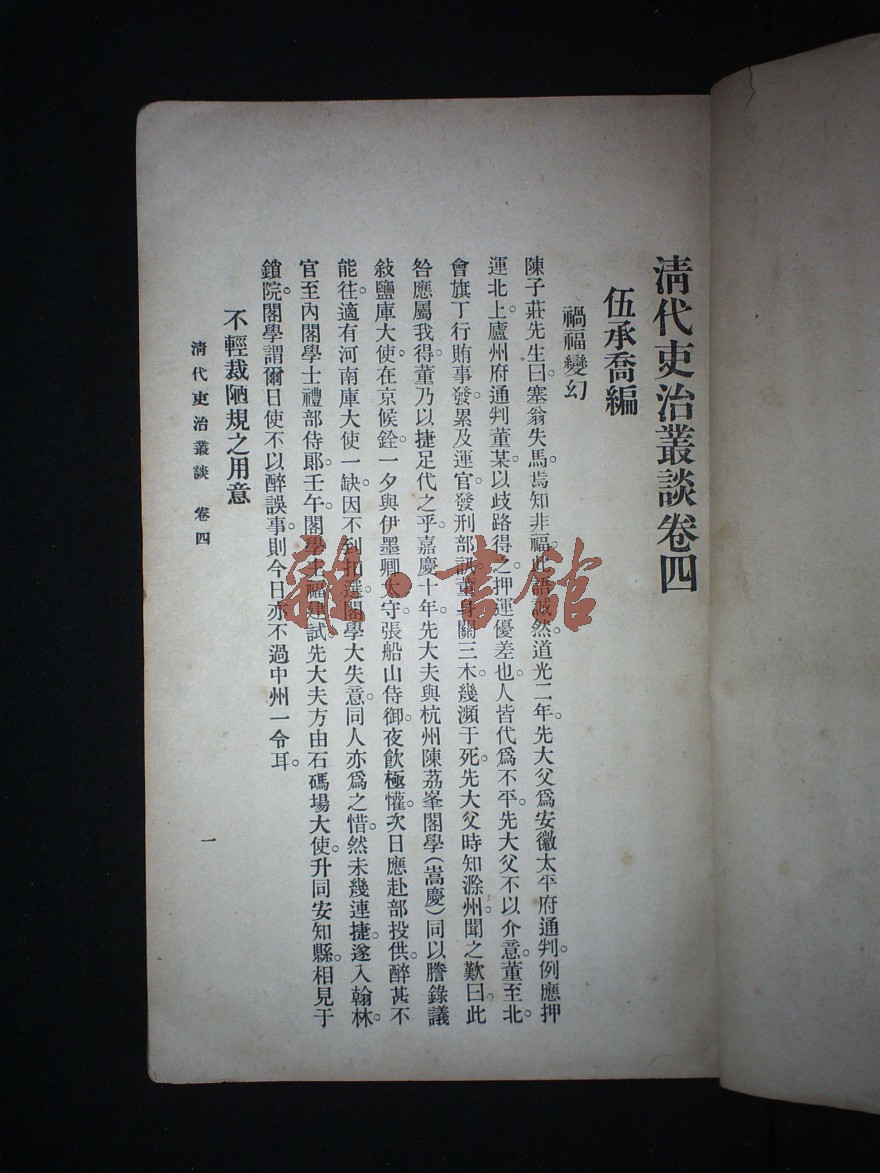 清代吏治叢談卷四
伍承喬編
禍福變幻
陳子莊先生曰塞翁失馬焉知非福此語誠然道光二年先大父爲安徽太平府通判例應押
運北上廬州府通判董某以歧路得之押運優差也人皆代爲不平先大父不以介意董至北
會旗丁行賄事發累及運官發刑部訊董身關三木幾瀕于死先大父時知滁州聞之歎曰此
咎應屬我得董乃以捷足代之乎嘉慶十年先大夫與杭州陳荔峯閣學(嵩慶)同以謄錄議
敍鹽庫大使在京候銓一夕與伊墨卿太守張船山侍御夜飲極懽次日應赴部投供醉甚不
能往適有河南庫大使一缺因不到扣選閣學大失意同人亦爲之惜然未幾連捷遂入翰林
官至內閣學士禮部侍郎壬午閣學主福建試先大夫方由石碼場大使升同安知縣相見于
鎖院閣學謂爾日使不以醉誤事則今日亦不過中州一令耳
不輕裁陋規之用意
清代吏治叢談 卷四
一
雜·書館